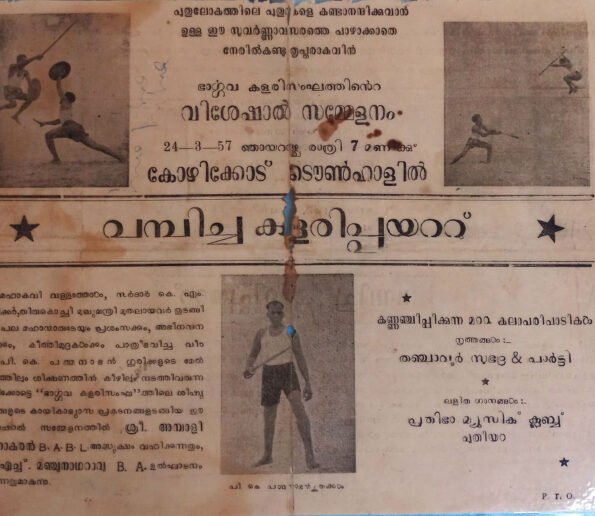 പുതുലോകത്തിലെ പുതുമകളെ കണ്ടാനന്ദിക്കുവാൻ
ഉള്ള ഈ സുവർണ്ണാവസരത്തെ പാഴാക്കാതെ
നേരിൽകണ്ടു തൃപ്തരാകുവിൻ
ഭാർഗ്ഗവ കളരിസംഘത്തിന്റെ
വിശേഷാൽ സമ്മേളനം
24—3—57 ഞായറാഴ്ച രാത്രി 7 മണിക്ക്
കോഴിക്കോട് ടൌൺഹാളിൽ
വമ്പിച്ച കളരിപ്പയററ്
മഹാകവി വള്ളത്തോൾ, സർദാർ കെ. എം.
മുഖ്യമന്ത്രി മുതലായവർ തുടങ്ങി
പല മഹാന്മാരുടേയും പ്രശംസക്കും, അഭിനന്ദന
കീർത്തിമുദ്രകൾക്കും പാത്രീഭവിച്ച വീര
പി. കെ. പത്മനാഭൻ ഗുരിക്കളുടെ മേൽ
ശിക്ഷണത്തിൻ കീഴിലും നടത്തിവരുന്ന
"ഭാർഗ്ഗവ കളരിസംഘ"ത്തിലെ ശിഷ്യ
കായികാഭ്യാസ പ്രകടനങ്ങളടങ്ങിയ ഈ
സമ്മേളനത്തിൽ ശ്രീ. അമ്പാളി
B. A. B. L. അദ്ധ്യക്ഷം വഹിക്കുന്നതും,
എച്ച്. മഞ്ചുനാഥറാവു B. A. ഉൽഘാടനം
പി. കെ പത്മനാഭൻ ഗുരുക്കൾ
കണ്ണഞ്ചിപ്പിക്കുന്ന മററു കലാപരിപാടികൾ
നൃത്തങ്ങൾ:—
തഞ്ചാവൂർ സുഭദ്ര & പാർട്ടി
ലളിത ഗാനങ്ങൾ:—
പ്രതിഭാ മ്യൂസിക് ക്ലബ്ബ്
പുതിയറ
P. T. O.